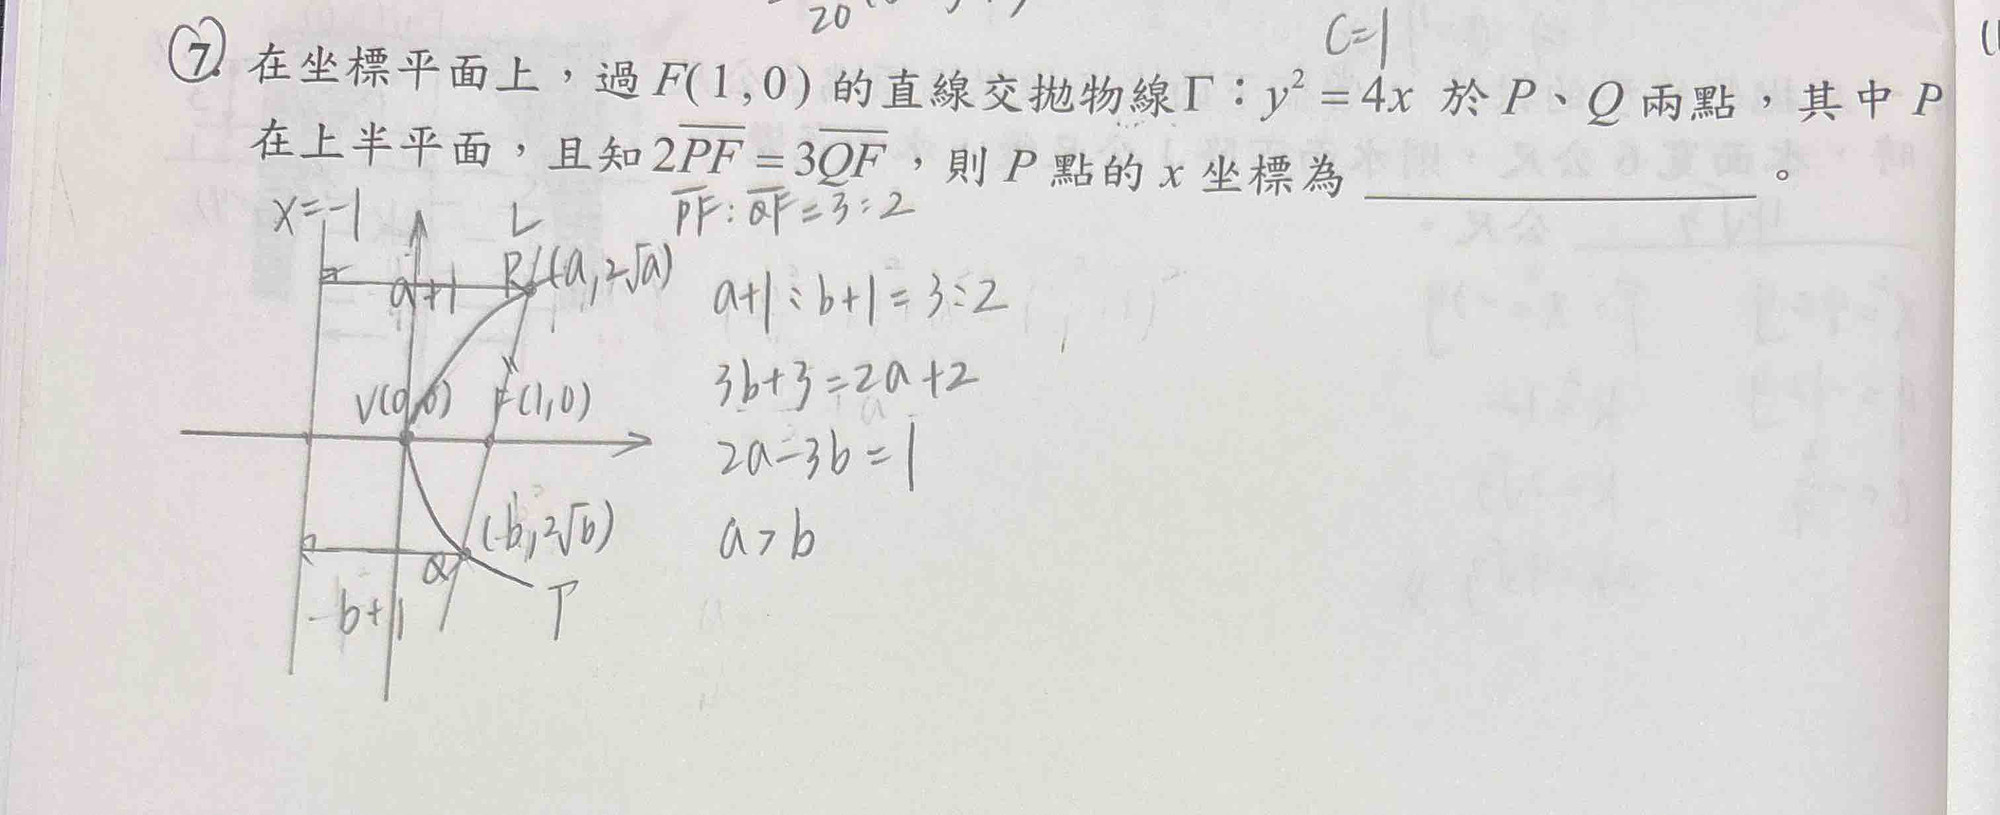 20
C=1
7. 在坐標平面上，過 F(1,0) 的直線交拋物線Γ：y² = 4x 於 P、Q 兩點，其中 P
在上半平面，且知 2PF = 3QF，則 P 點的 x 坐標為 ________。
PF : QF = 3 : 2
x=-1
L
P (a, 2√a)
a+1
a+1 : b+1 = 3 : 2
3b+3 = 2a+2
V(0,0) F(1,0)
2a-3b = 1
(b, 2√b)
a > b
Q
b+1
Γ